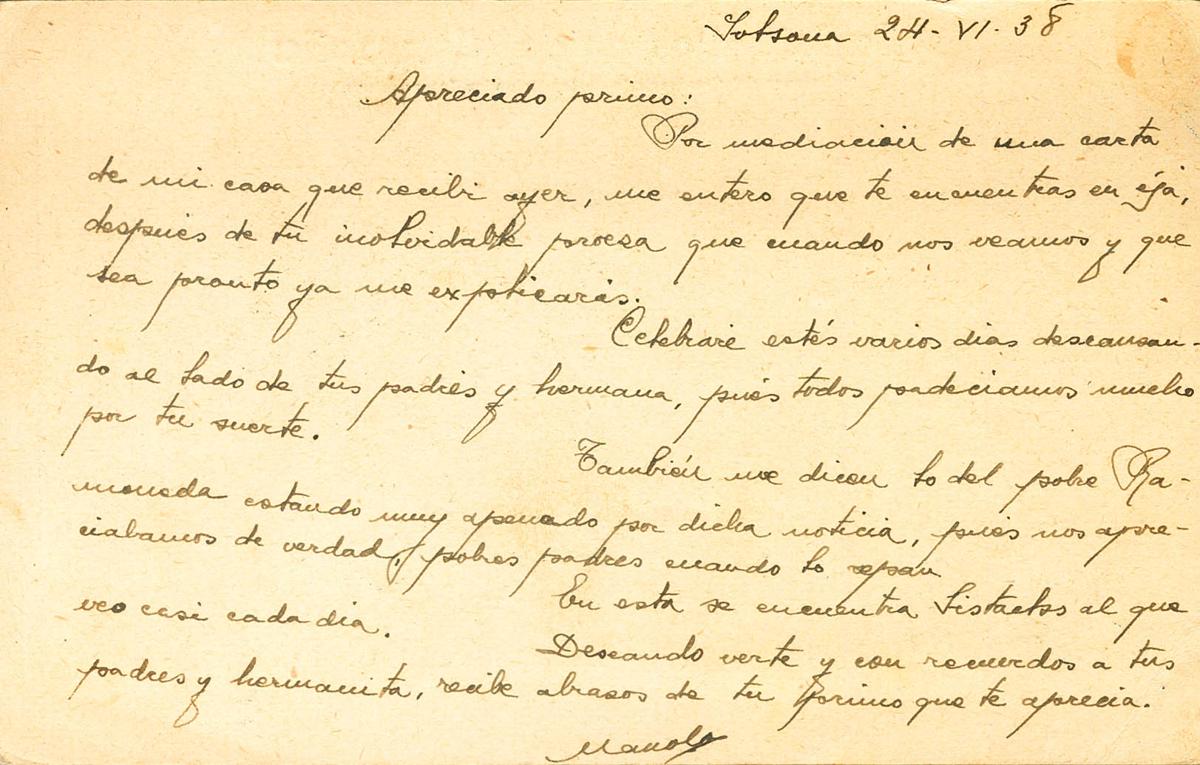 Solsona 24-VI-38
Apreciado primo:
Por mediación de una carta
de mi casa que recibi ayer, me entero que te encuentras en ésa,
después de tu inolvidable proeza que cuando nos veamos y que
sea pronto ya me explicarás.
Celebraré estés varios dias descansan-
do al lado de tus padrés y hermana, pués todos padeciamos mucho
por tu suerte.
También me dicen lo del pobre Ra-
moneda estando muy apenado por dicha noticia, pués nos apre-
ciabamos de verdad, pobres padres cuando lo sepan
En esta se encuentra al que
veo casi cada dia.
Deseando verte y con recuerdos a tus
padres y hermanita, recibe abrasos de tu primo que te aprecia.
Manolo